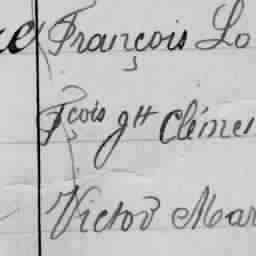 François Lo
Fçois gtt Clémen
Victor Mar